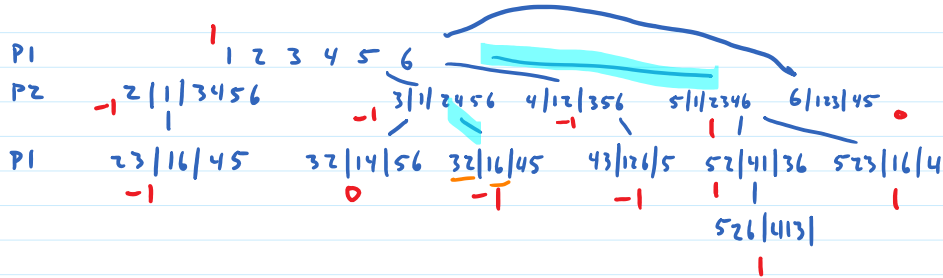 1
P1 1 2 3 4 5 6
P2 -1 2|1|3456 -1 3|1|2456 4|12|356 -1 5|1|2346 1 6|123|45 0
P1 23|16|45 32|14|56 32|16|45 43|126|5 52|41|36 523|16|4
-1 0 -1 -1 1 1
526|413|
1